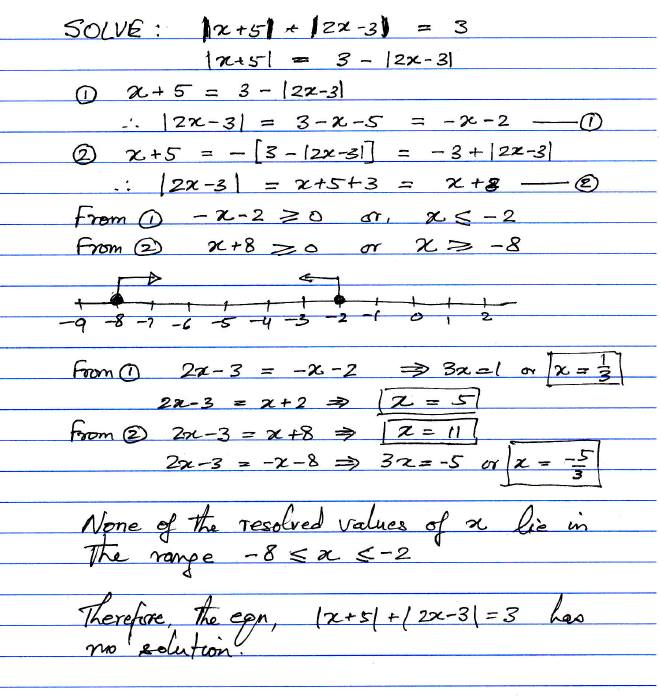 SOLVE : |x+5| + |2x-3| = 3
|x+5| = 3 - |2x-3|
① x+5 = 3 - |2x-3|
∴ |2x-3| = 3-x-5 = -x-2 —①
② x+5 = -[3-|2x-3|] = -3+|2x-3|
∴ |2x-3| = x+5+3 = x+8 —②
From ① -x-2 ≥ 0 or, x ≤ -2
From ② x+8 ≥ 0 or x ≥ -8
-9 -8 -7 -6 -5 -4 -3 -2 -1 0 1 2
From ① 2x-3 = -x-2 ⇒ 3x=1 or x = 1/3
2x-3 = x+2 ⇒ x = 5
From ② 2x-3 = x+8 ⇒ x = 11
2x-3 = -x-8 ⇒ 3x=-5 or x = -5/3
None of the resolved values of x lie in
the range -8 ≤ x ≤ -2
Therefore, the eqn, |x+5|+|2x-3|=3 has
no solution.